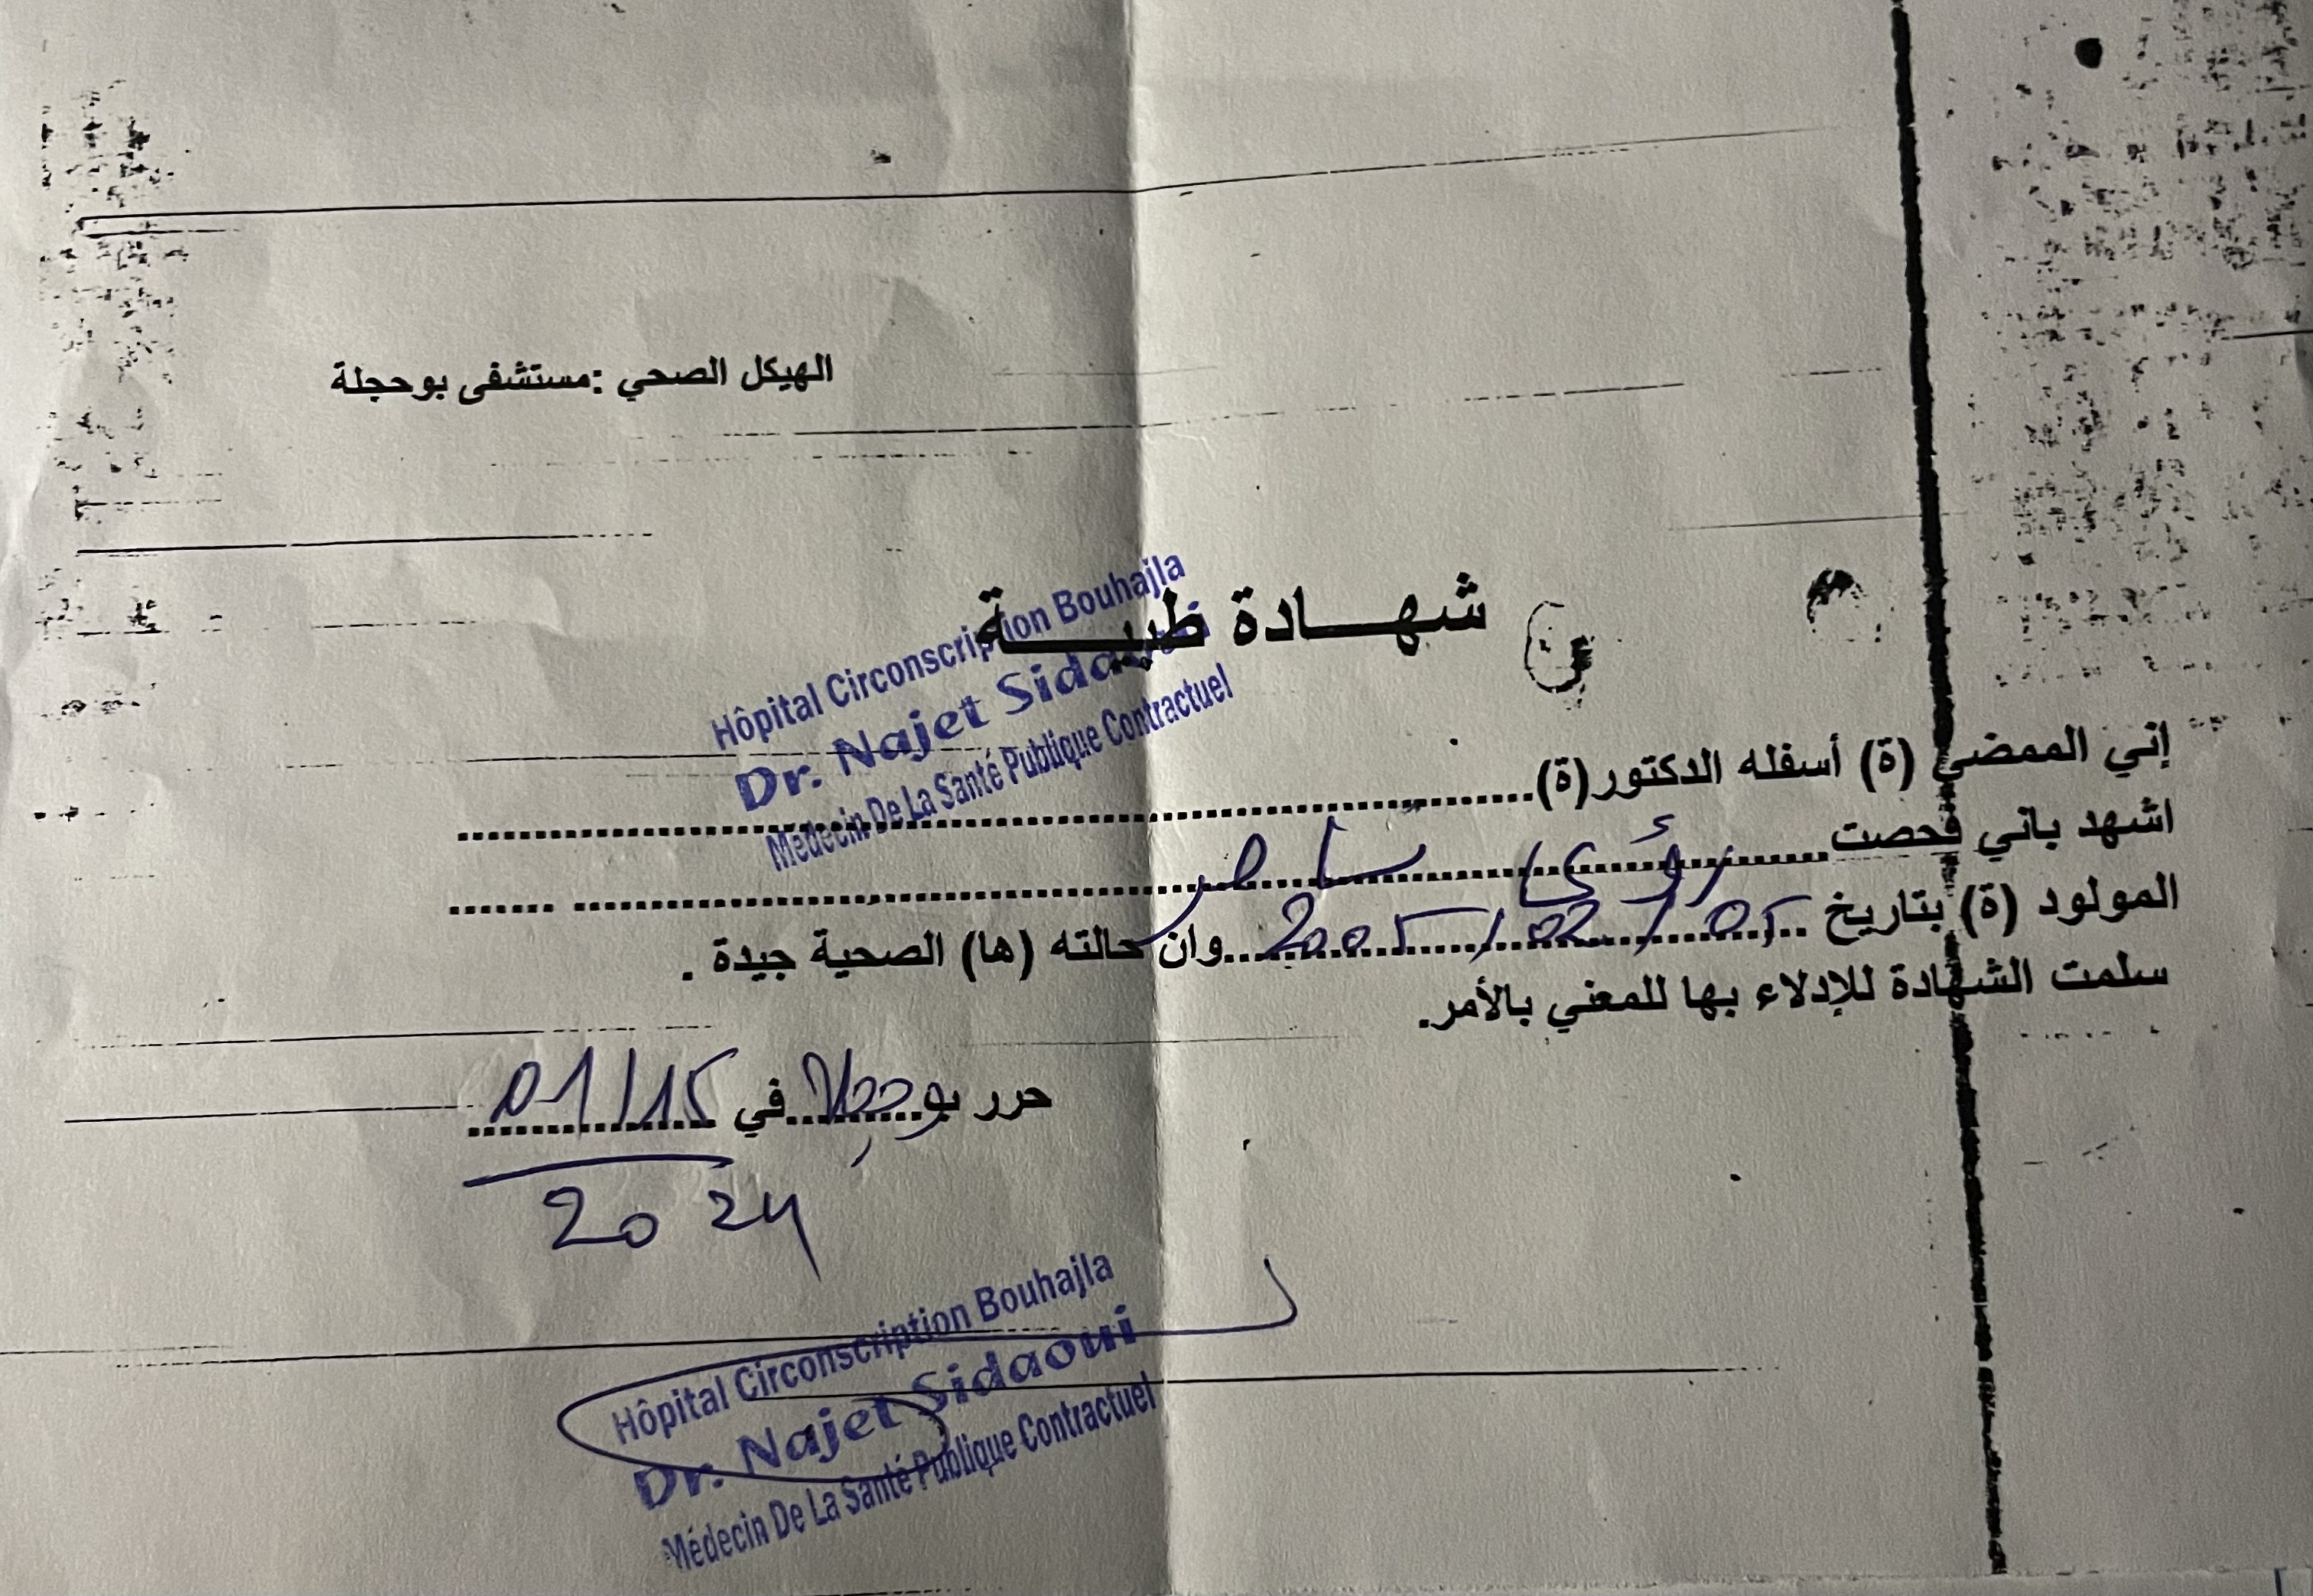 الهيكل الصحي :مستشفى بوحجلة
شهـــادة طبيـــة
Hôpital Circonscription Bouhajla
Dr. Najet Sidaoui
Médecin De La Santé Publique Contractuel
إني الممضي (ة) أسفله الدكتور(ة)
اشهد باني فحصت رؤى
المولود (ة) بتاريخ 05/02/2005 وان حالته (ها) الصحية جيدة .
سلمت الشهادة للإدلاء بها للمعني بالأمر.
حرر بوحجلة في 01/15
2024
Hôpital Circonscription Bouhajla
Dr. Najet Sidaoui
Médecin De La Santé Publique Contractuel